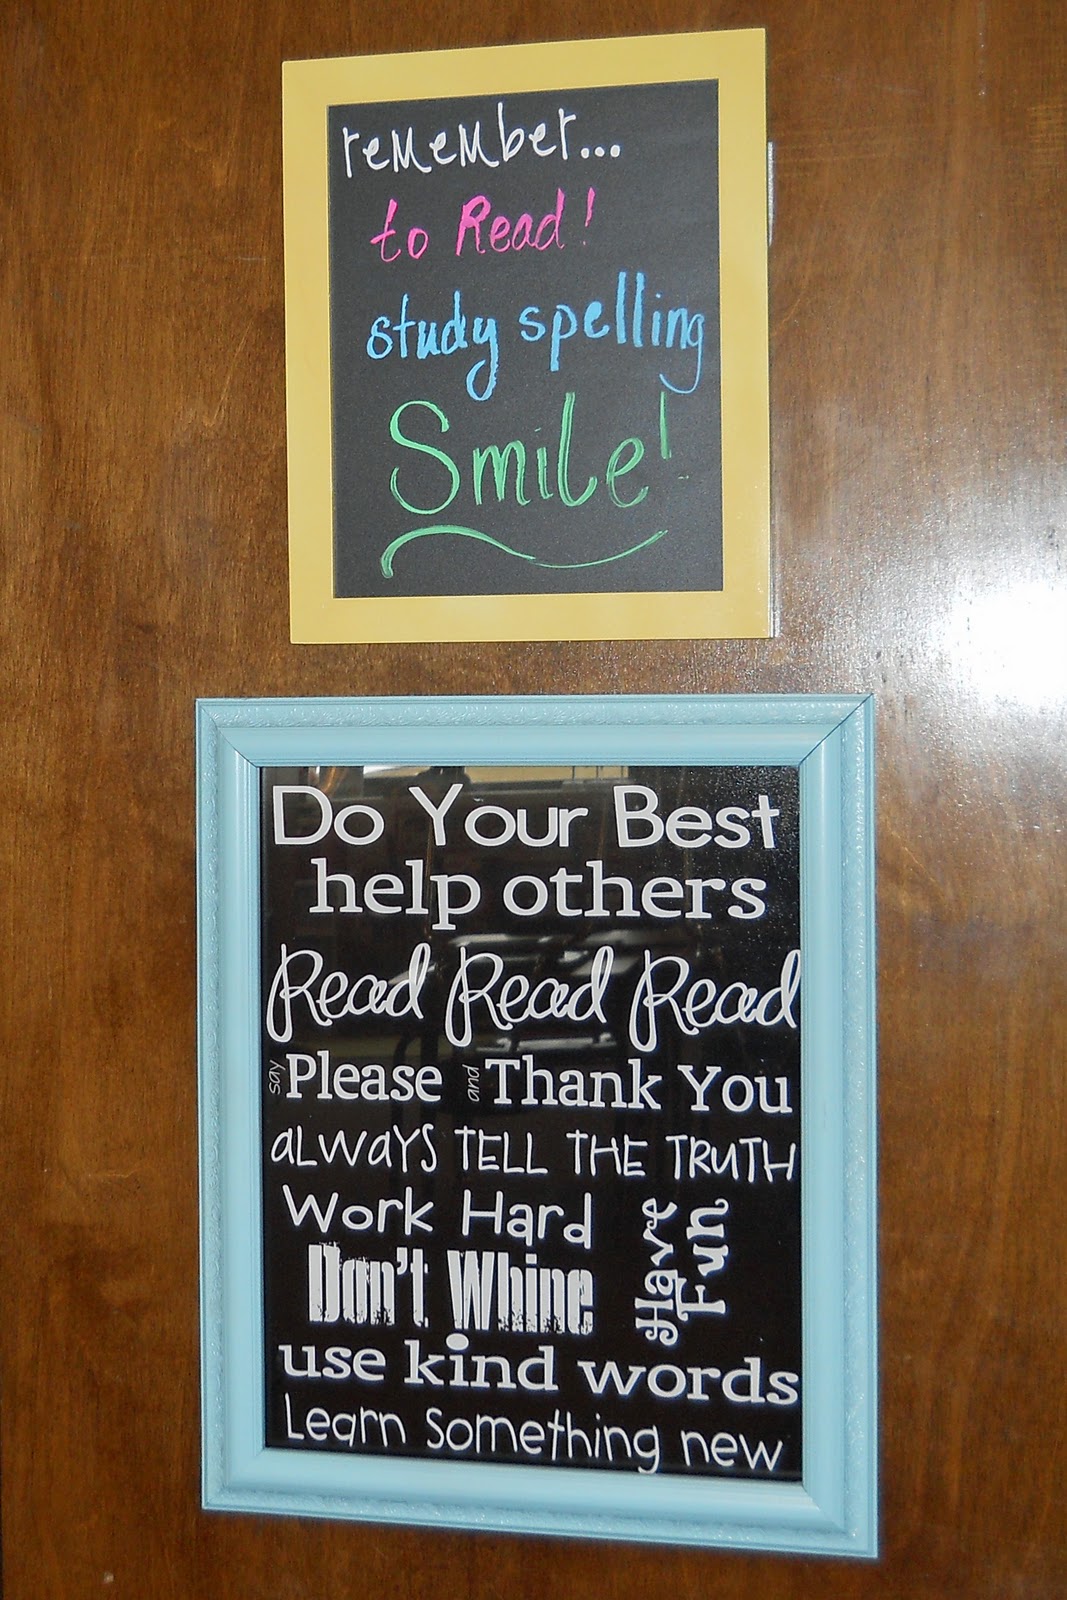 remember...
to Read!
study spelling
Smile!
Do Your Best
help others
Read Read Read
say Please and Thank You
always TELL THE TRUTH
Work Hard
Don't Whine
Have
Fun
use kind words
Learn Something new